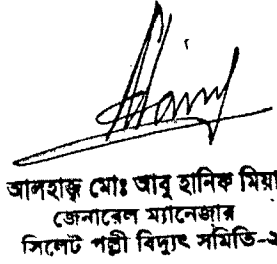 আলহাজ্ব মোঃ আবু হানিফ মিয়া
জেনারেল ম্যানেজার
সিলেট পল্লী বিদ্যুৎ সমিতি-২